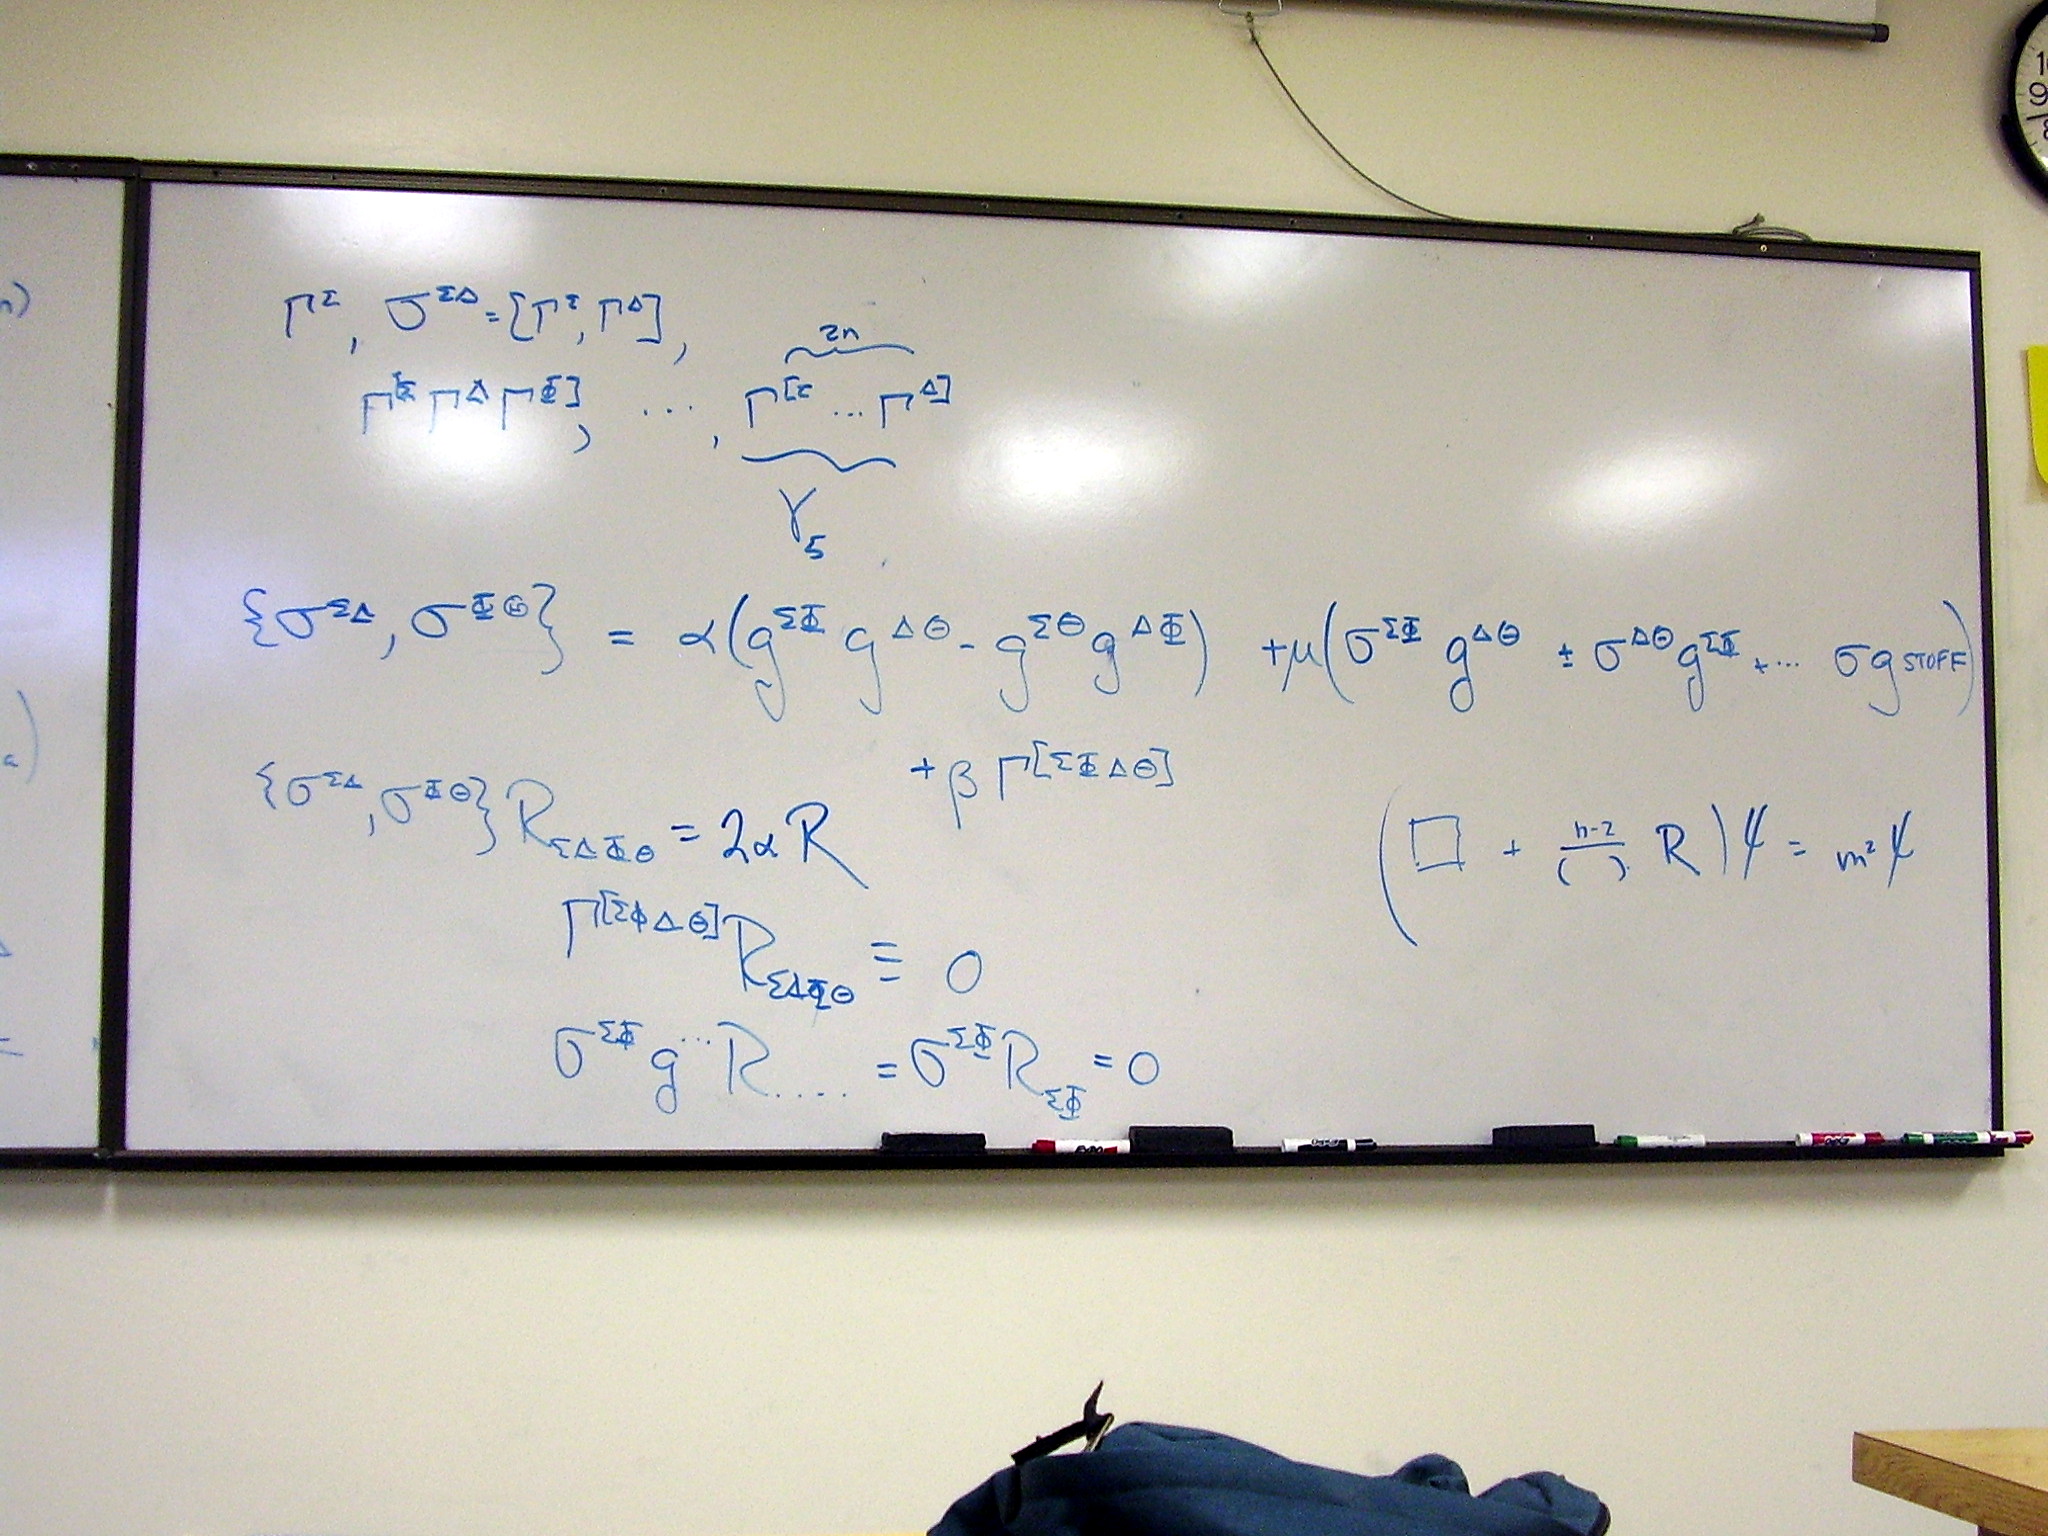 Γ^Σ, σ^{ΣΔ} = [Γ^Σ, Γ^Δ],
2n
Γ^{[Σ} Γ^Δ Γ^{Φ]}, ..., Γ^{[Σ} ... Γ^{Δ]}
γ_5
{σ^{ΣΔ}, σ^{ΦΘ}} = α(g^{ΣΦ} g^{ΔΘ} - g^{ΣΘ} g^{ΔΦ}) + μ(σ^{ΣΦ} g^{ΔΘ} ± σ^{ΔΘ} g^{ΣΦ} + ... σg STOFF)
+ β Γ^{[ΣΦΔΘ]}
{σ^{ΣΔ}, σ^{ΦΘ}} R_{ΣΔΦΘ} = 2αR
(□ + \frac{n-2}{( )} R)ψ = m²ψ
Γ^{[ΣΦΔΘ]} R_{ΣΔΦΘ} ≡ 0
σ^{ΣΦ} g^{...} R_{....} = σ^{ΣΦ} R_{ΣΦ} = 0
10
9
8
n)
a)
Δ
EXPO